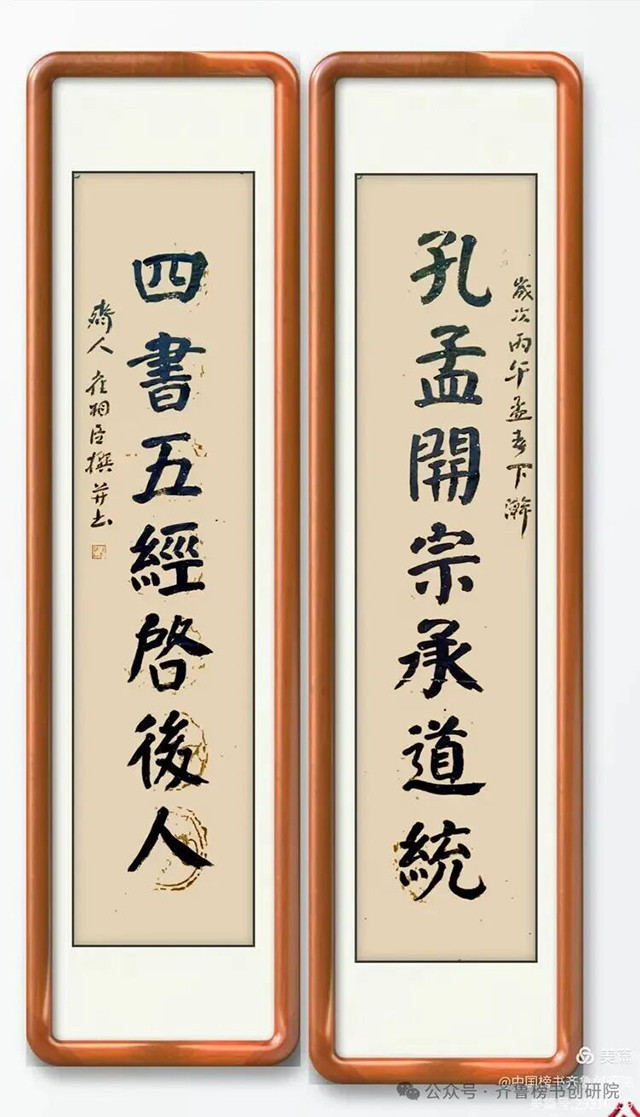 孔孟開宗承道統
歲次丙午孟春下澣
四書五經啓後人
齊人崔相臣撰并书
美篇
@中国榜书齐鲁
公众号·齐鲁榜书创研院